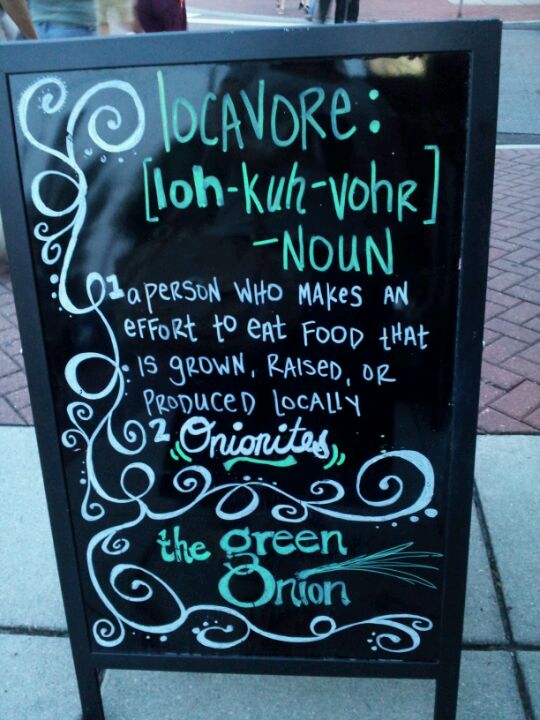 locavore:
[loh-kuh-vohr]
-NOUN
1 a person who makes an
effort to eat food that
is grown, raised, or
produced locally
2 Onionites
the green
Onion